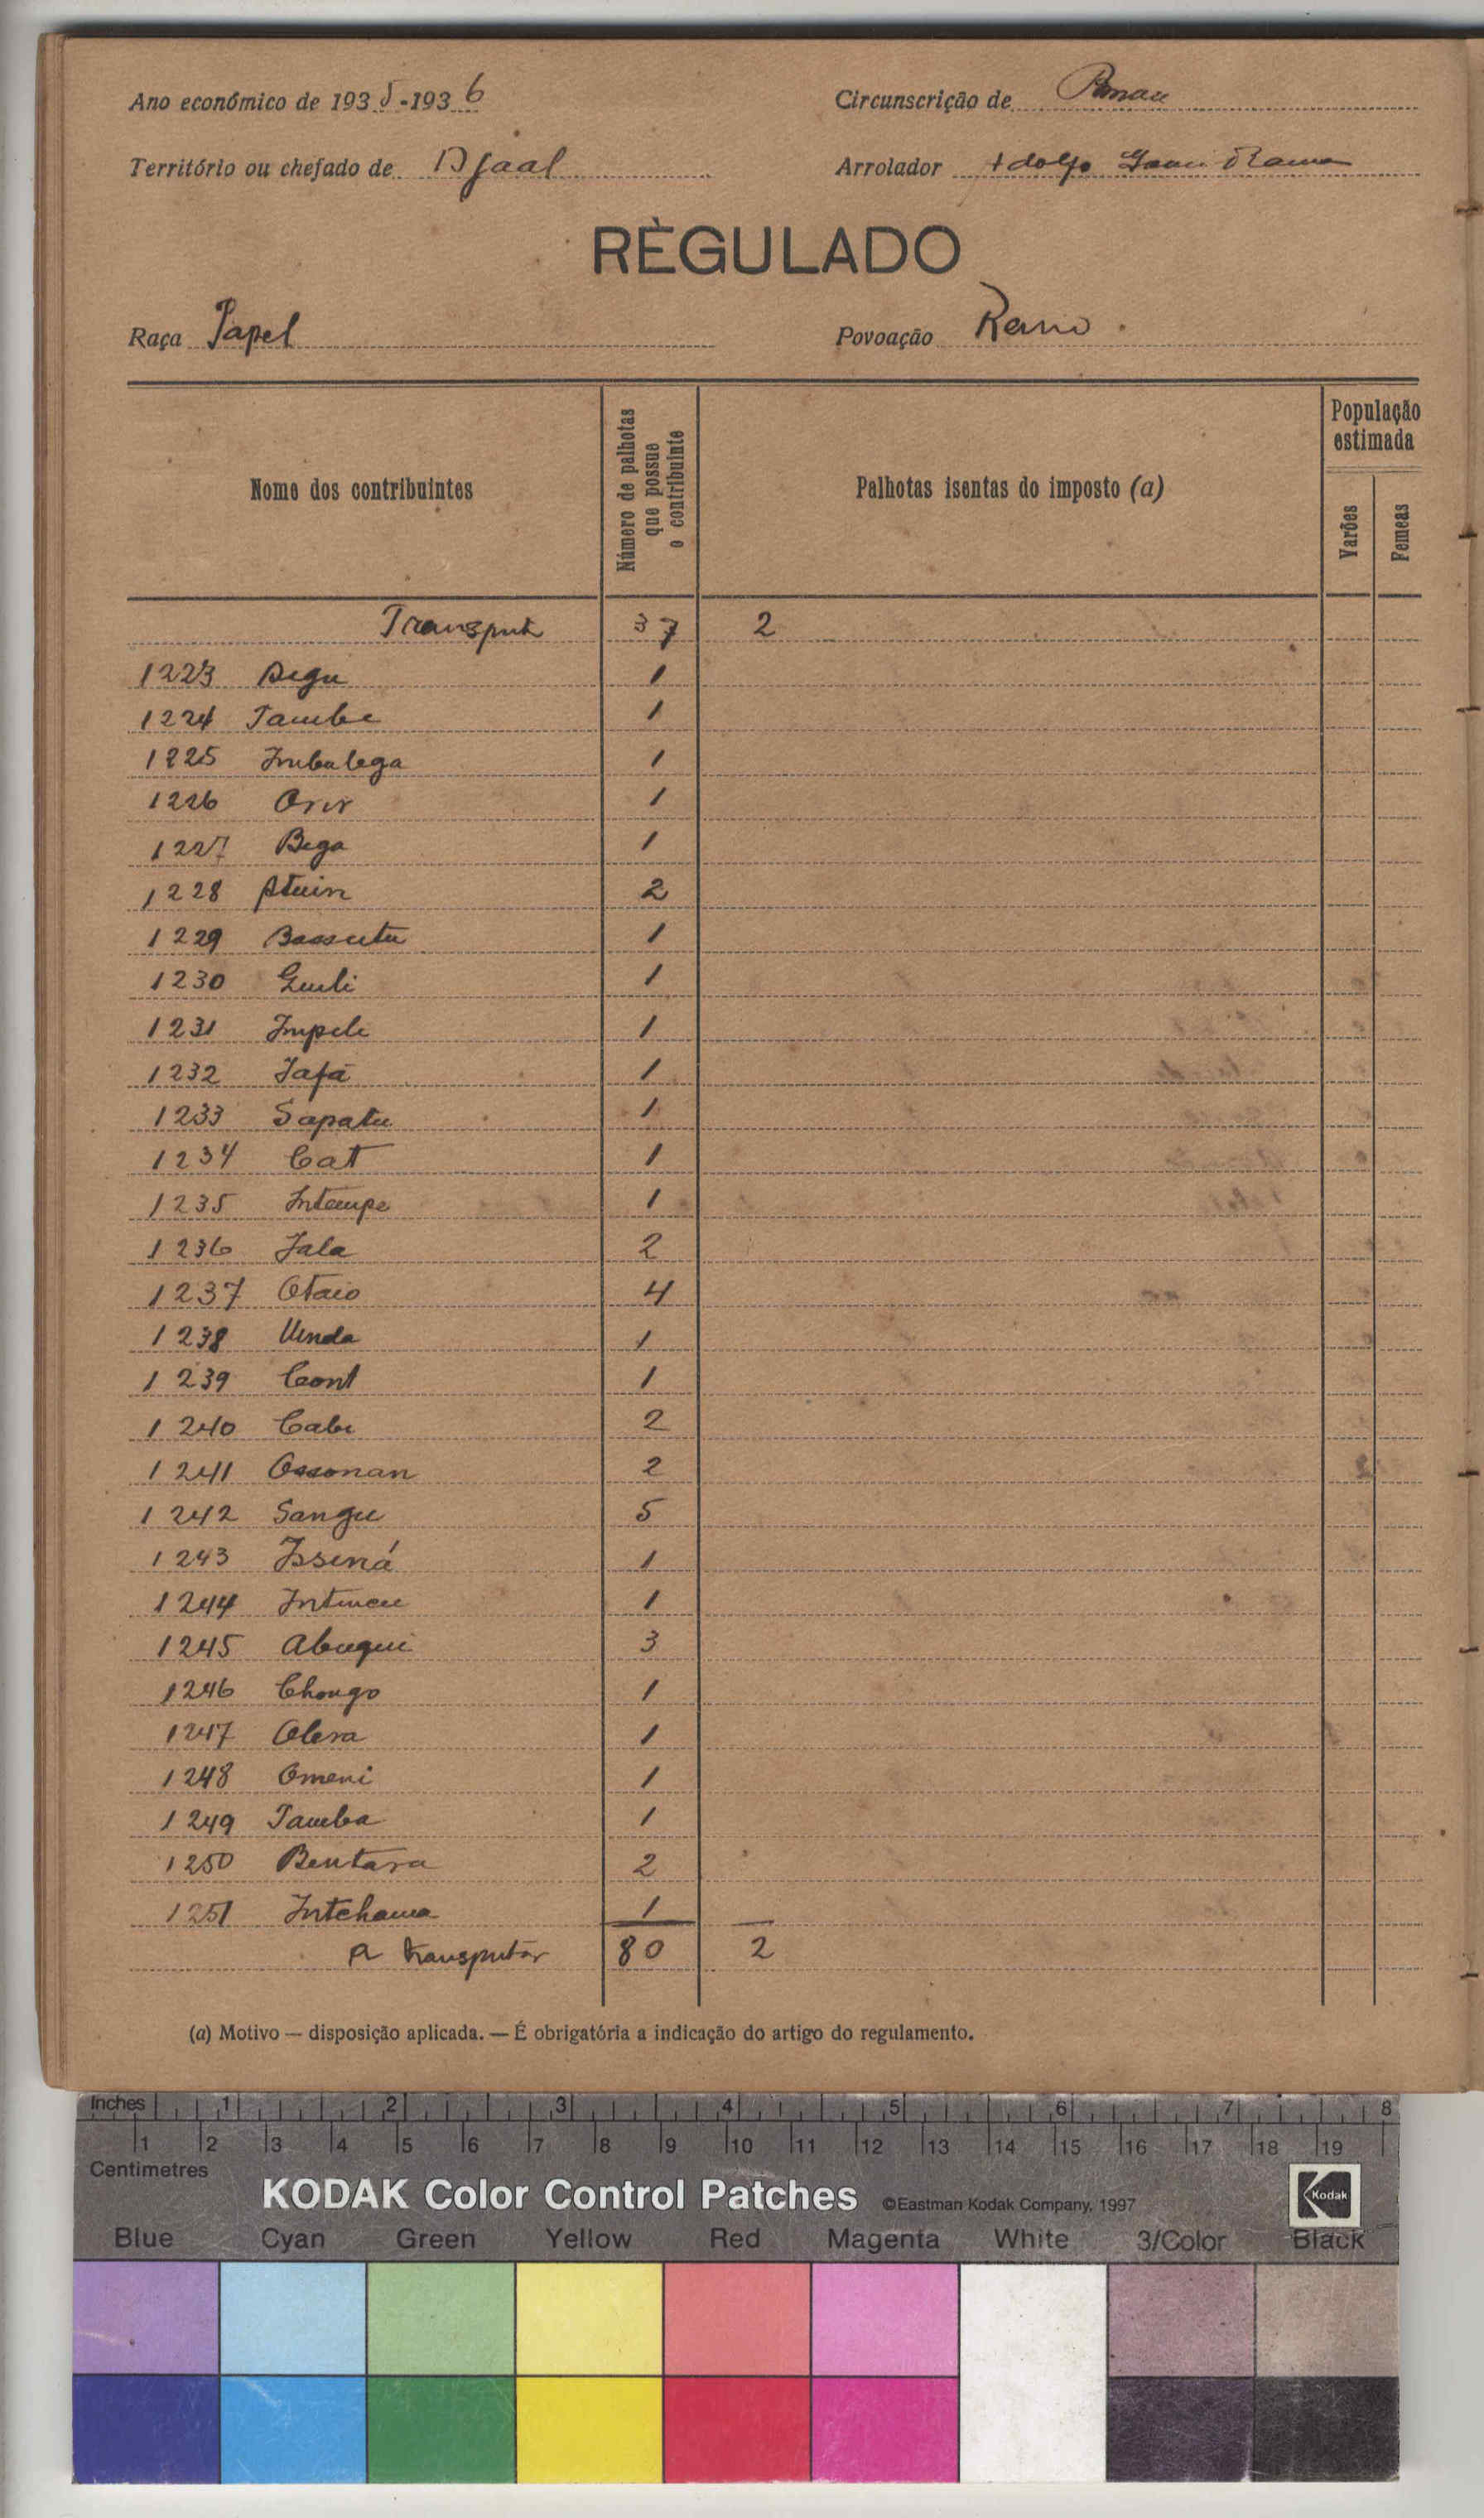 Ano económico de 1935-1936 Circunscrição de
Território ou chefado de Arrolador Adolfo
RÈGULADO
Raça Papel Povoação
Nome dos contribuintes
Número de palhotas que possue o contribuinte
Palhotas isentas do imposto (a)
População estimada
Varões
Femeas
Transporte 37 2
1223 Degu 1
1224 Tambe 1
1225 Imbalega 1
1226 1
1227 Bega 1
1228 2
1229 Bassutu 1
1230 1
1231 Impele 1
1232 Jafá 1
1233 Sapatu 1
1234 Cat 1
1235 Intampe 1
1236 Jala 2
1237 Otaio 4
1238 Umda 1
1239 Cont 1
1240 2
1241 Ossonan 2
1242 Sangu 5
1243 Issená 1
1244 1
1245 Abuqui 3
1246 Chongo 1
1247 1
1248 Omeni 1
1249 Tamba 1
1250 Bentara 2
1251 Intchama 1
A transportar 80 2
(a) Motivo — disposição aplicada. — É obrigatória a indicação do artigo do regulamento.
Inches 1 2 3 4 5 6 7 8
1 2 3 4 5 6 7 8 9 10 11 12 13 14 15 16 17 18 19
Centimetres
KODAK Color Control Patches ©Eastman Kodak Company, 1997 Kodak
Blue Cyan Green Yellow Red Magenta White 3/Color Black